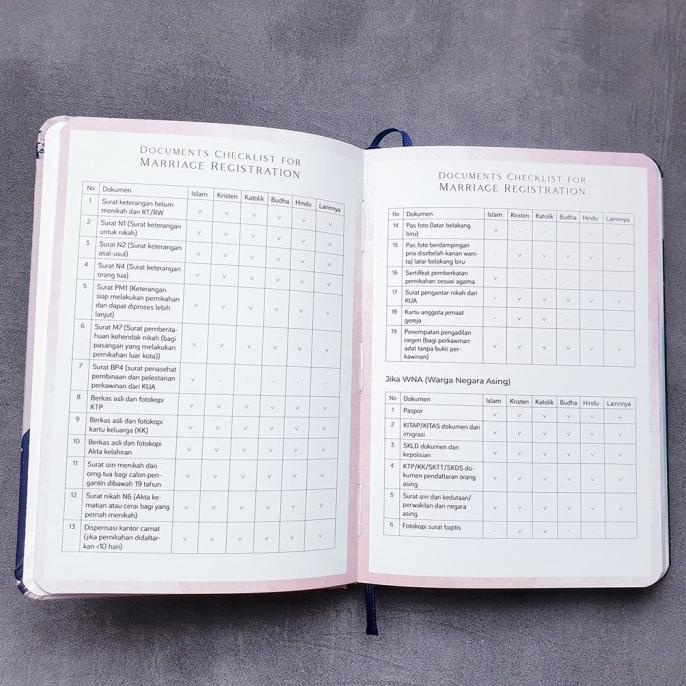 DOCUMENTS CHECKLIST FOR
MARRIAGE REGISTRATION
No Dokumen Islam Kristen Katolik Budha Hindu Lainnya
1 Surat keterangan belum
menikah dari RT/RW v v v v v v
2 Surat N1 (Surat keterangan
untuk nikah) v v v v v v
3 Surat N2 (Surat keterangan
asal-usul) v v v v v v
4 Surat N4 (Surat keterangan
orang tua) v v v v v v
5 Surat PM1 (Keterangan
siap melakukan pernikahan
dan dapat diproses lebih
lanjut) v v v v v v
6 Surat M7 (Surat pemberita-
huan kehendak nikah (bagi
pasangan yang melakukan
pernikahan luar kota)) v v v v v v
7 Surat BP4 (surat penasehat
pembinaan dan pelestarian
perkawinan dari KUA v - - - - -
8 Berkas asli dan fotokopi
KTP v v v v v v
9 Berkas asli dan fotokopi
kartu keluarga (KK) v v v v v v
10 Berkas asli dan fotokopi
Akta kelahiran v v v v v v
11 Surat izin menikah dari
orng tua bagi calon pen-
gantin dibawah 19 tahun v v v v v v
12 Surat nikah N6 (Akta ke-
matian atau cerai bagi yang
pernah menikah) v v v v v v
13 Dispensasi kantor camat
(jika pernikahan didaftar-
kan <10 hari) v v v v v v
DOCUMENTS CHECKLIST FOR
MARRIAGE REGISTRATION
No Dokumen Islam Kristen Katolik Budha Hindu Lainnya
14 Pas foto (latar belakang
biru) v
15 Pas foto berdampingan
pria disebelah kanan wani-
ta) latar belakang biru - v v v v v
16 Sertifikat pemberkatan
pernikahan sesuai agama
17 Surat pengantar nikah dari
KUA
18 Kartu anggota jemaat
gereja - v v
19 Penempatan pengadilan
negeri (bagi perkawinan
adat tanpa bukti per-
kawinan)
Jika WNA (Warga Negara Asing)
No Dokumen Islam Kristen Katolik Budha Hindu Lainnya
1 Paspor v v v v v v
2 KITAP/KITAS dokumen dari
imigrasi v v v v v v
3 SKLD dokumen dari
kepolisian v v v v v v
4 KTP/KK/SKTT/SKDS do-
kumen pendaftaran orang
asing v v v v v v
5 Surat izin dari kedutaan/
perwakilan dari negara
asing v v v v v v
6 Fotokopi surat baptis - v v - - -